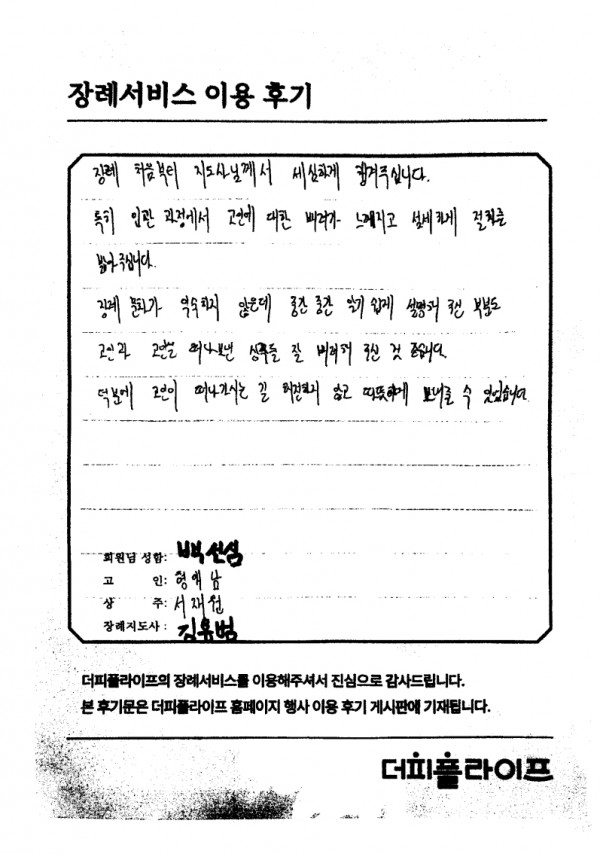 장례서비스 이용 후기
장례 처음부터 지도사님께서 세심하게 챙겨주십니다.
특히 입관 과정에서 고인에 대한 배려가 느껴지고 섬세하게 절차를
밟아주십니다.
장례 문화가 익숙하지 않은데 중간 중간 알기 쉽게 설명해 주신 부분도
고인과 고인을 떠나보낸 상주들을 잘 배려해 주신 것 같습니다.
덕분에 고인이 떠나가시는 길 허전하지 않고 따뜻하게 보내줄 수 있었습니다
회원님 성함: 백선심
고 인: 형애남
상 주: 서재원
장례지도사: 김유범
더피플라이프의 장례서비스를 이용해주셔서 진심으로 감사드립니다.
본 후기문은 더피플라이프 홈페이지 행사 이용 후기 게시판에 기재됩니다.
더피플라이프